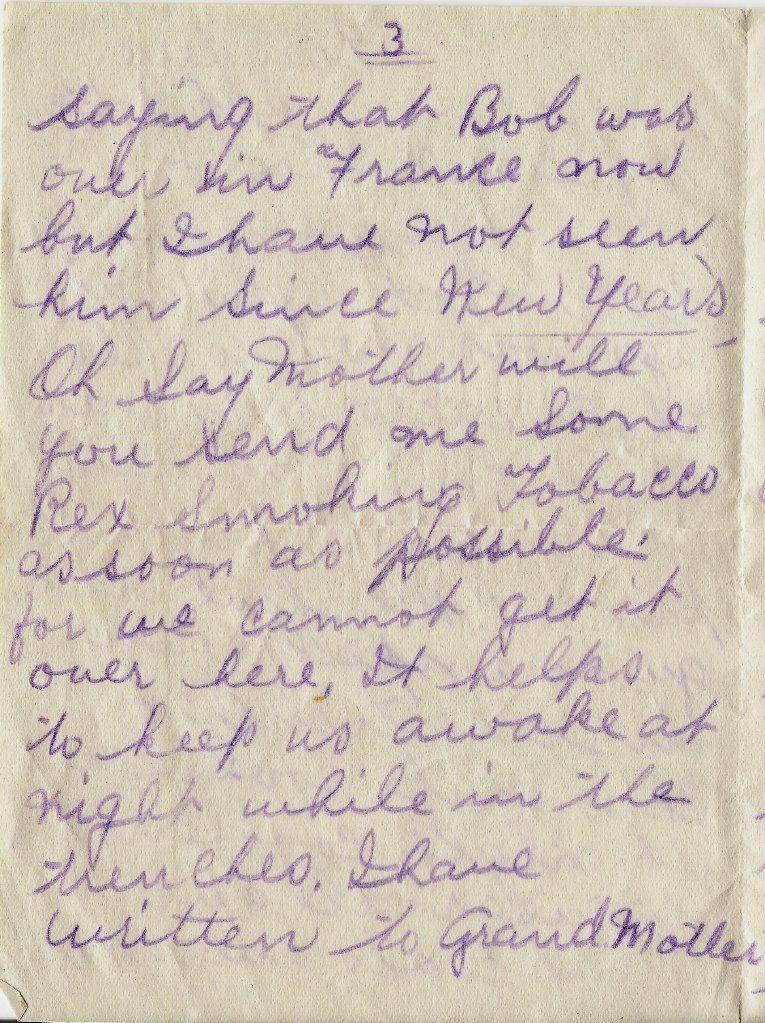 3
saying that Bob was
over in France now
but I have not seen
him since New Years
Oh Say Mother will
you send me Some
Rex Smoking Tobacco
as soon as possible.
for we cannot get it
over here, It helps
to keep us awake at
night while in the
trenches. I have
written to Grand Mother